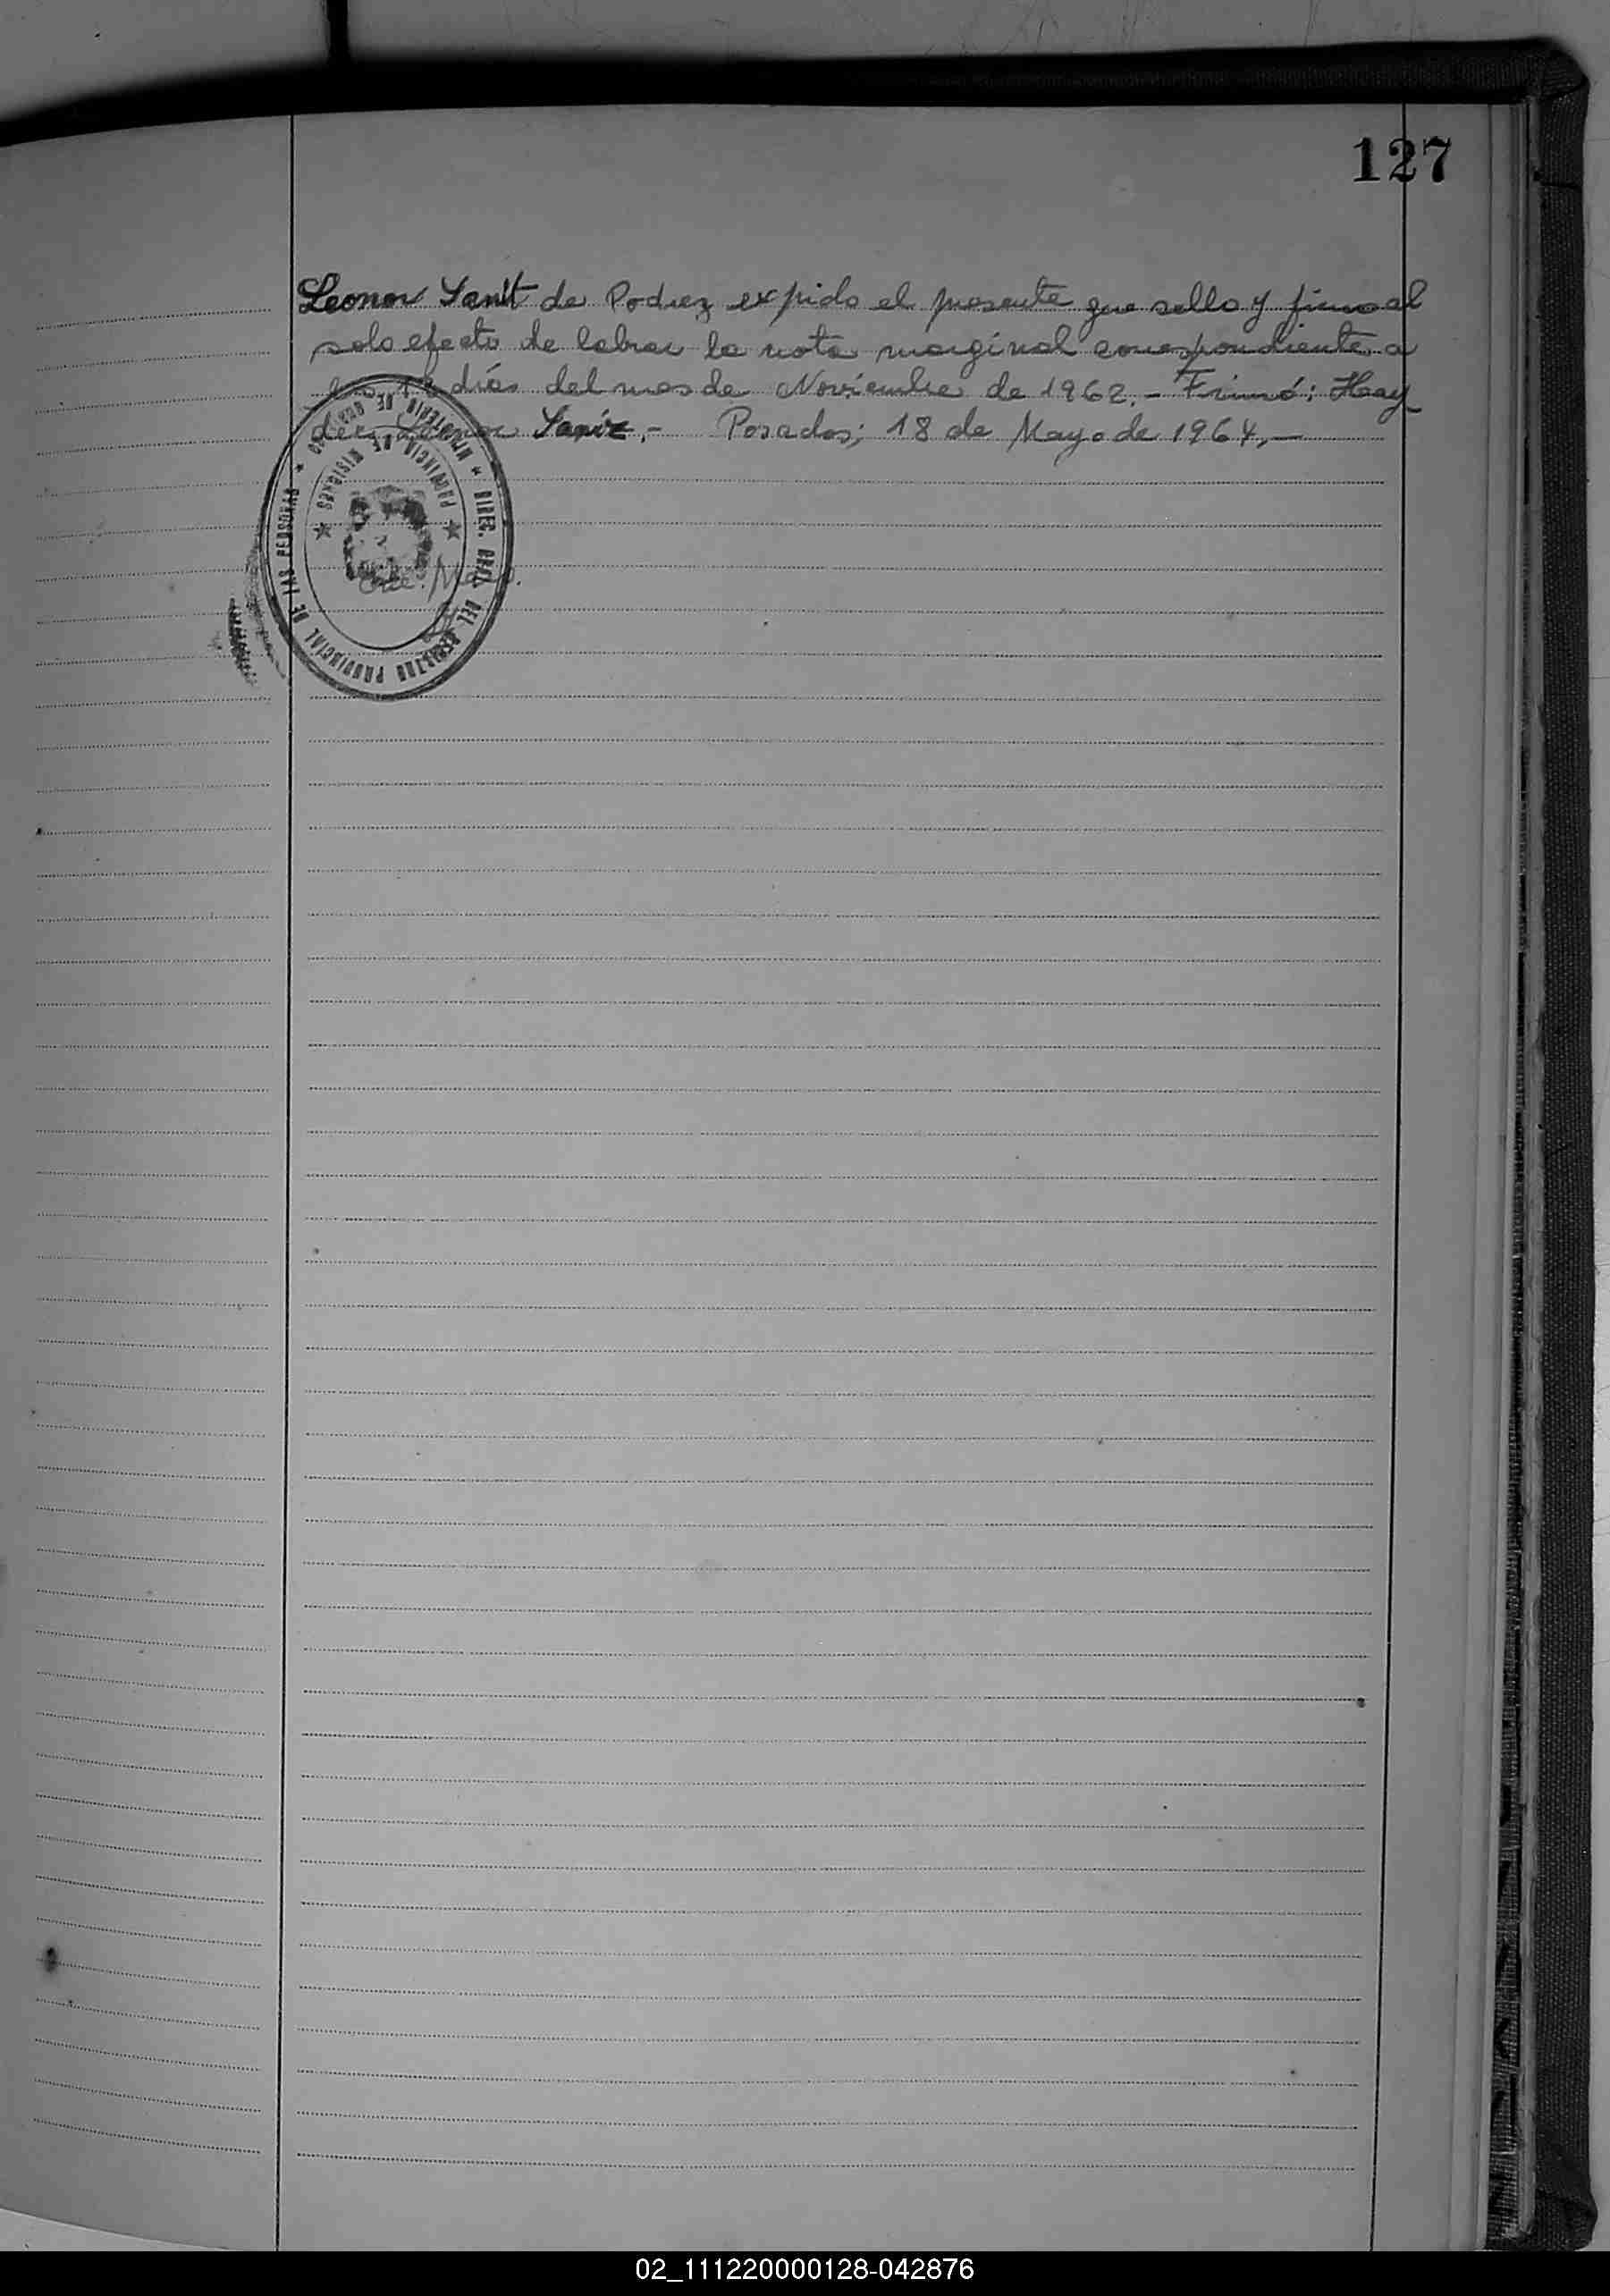 127
Leonor Sanit de Podrez expido el presente que sello y firmo al
solo efecto de labrar la nota marginal correspondiente a
los días del mes de Noviembre de 1962.- Firmó: Hay
der Leonor Saniz.- Posadas; 18 de Mayo de 1964,—
MINISTERIO DE GOBIERNO * DIREC. GRAL. DEL REGISTRO PROVINCIAL DE LAS PERSONAS *
PROVINCIA DE MISIONES
02_111220000128-042876